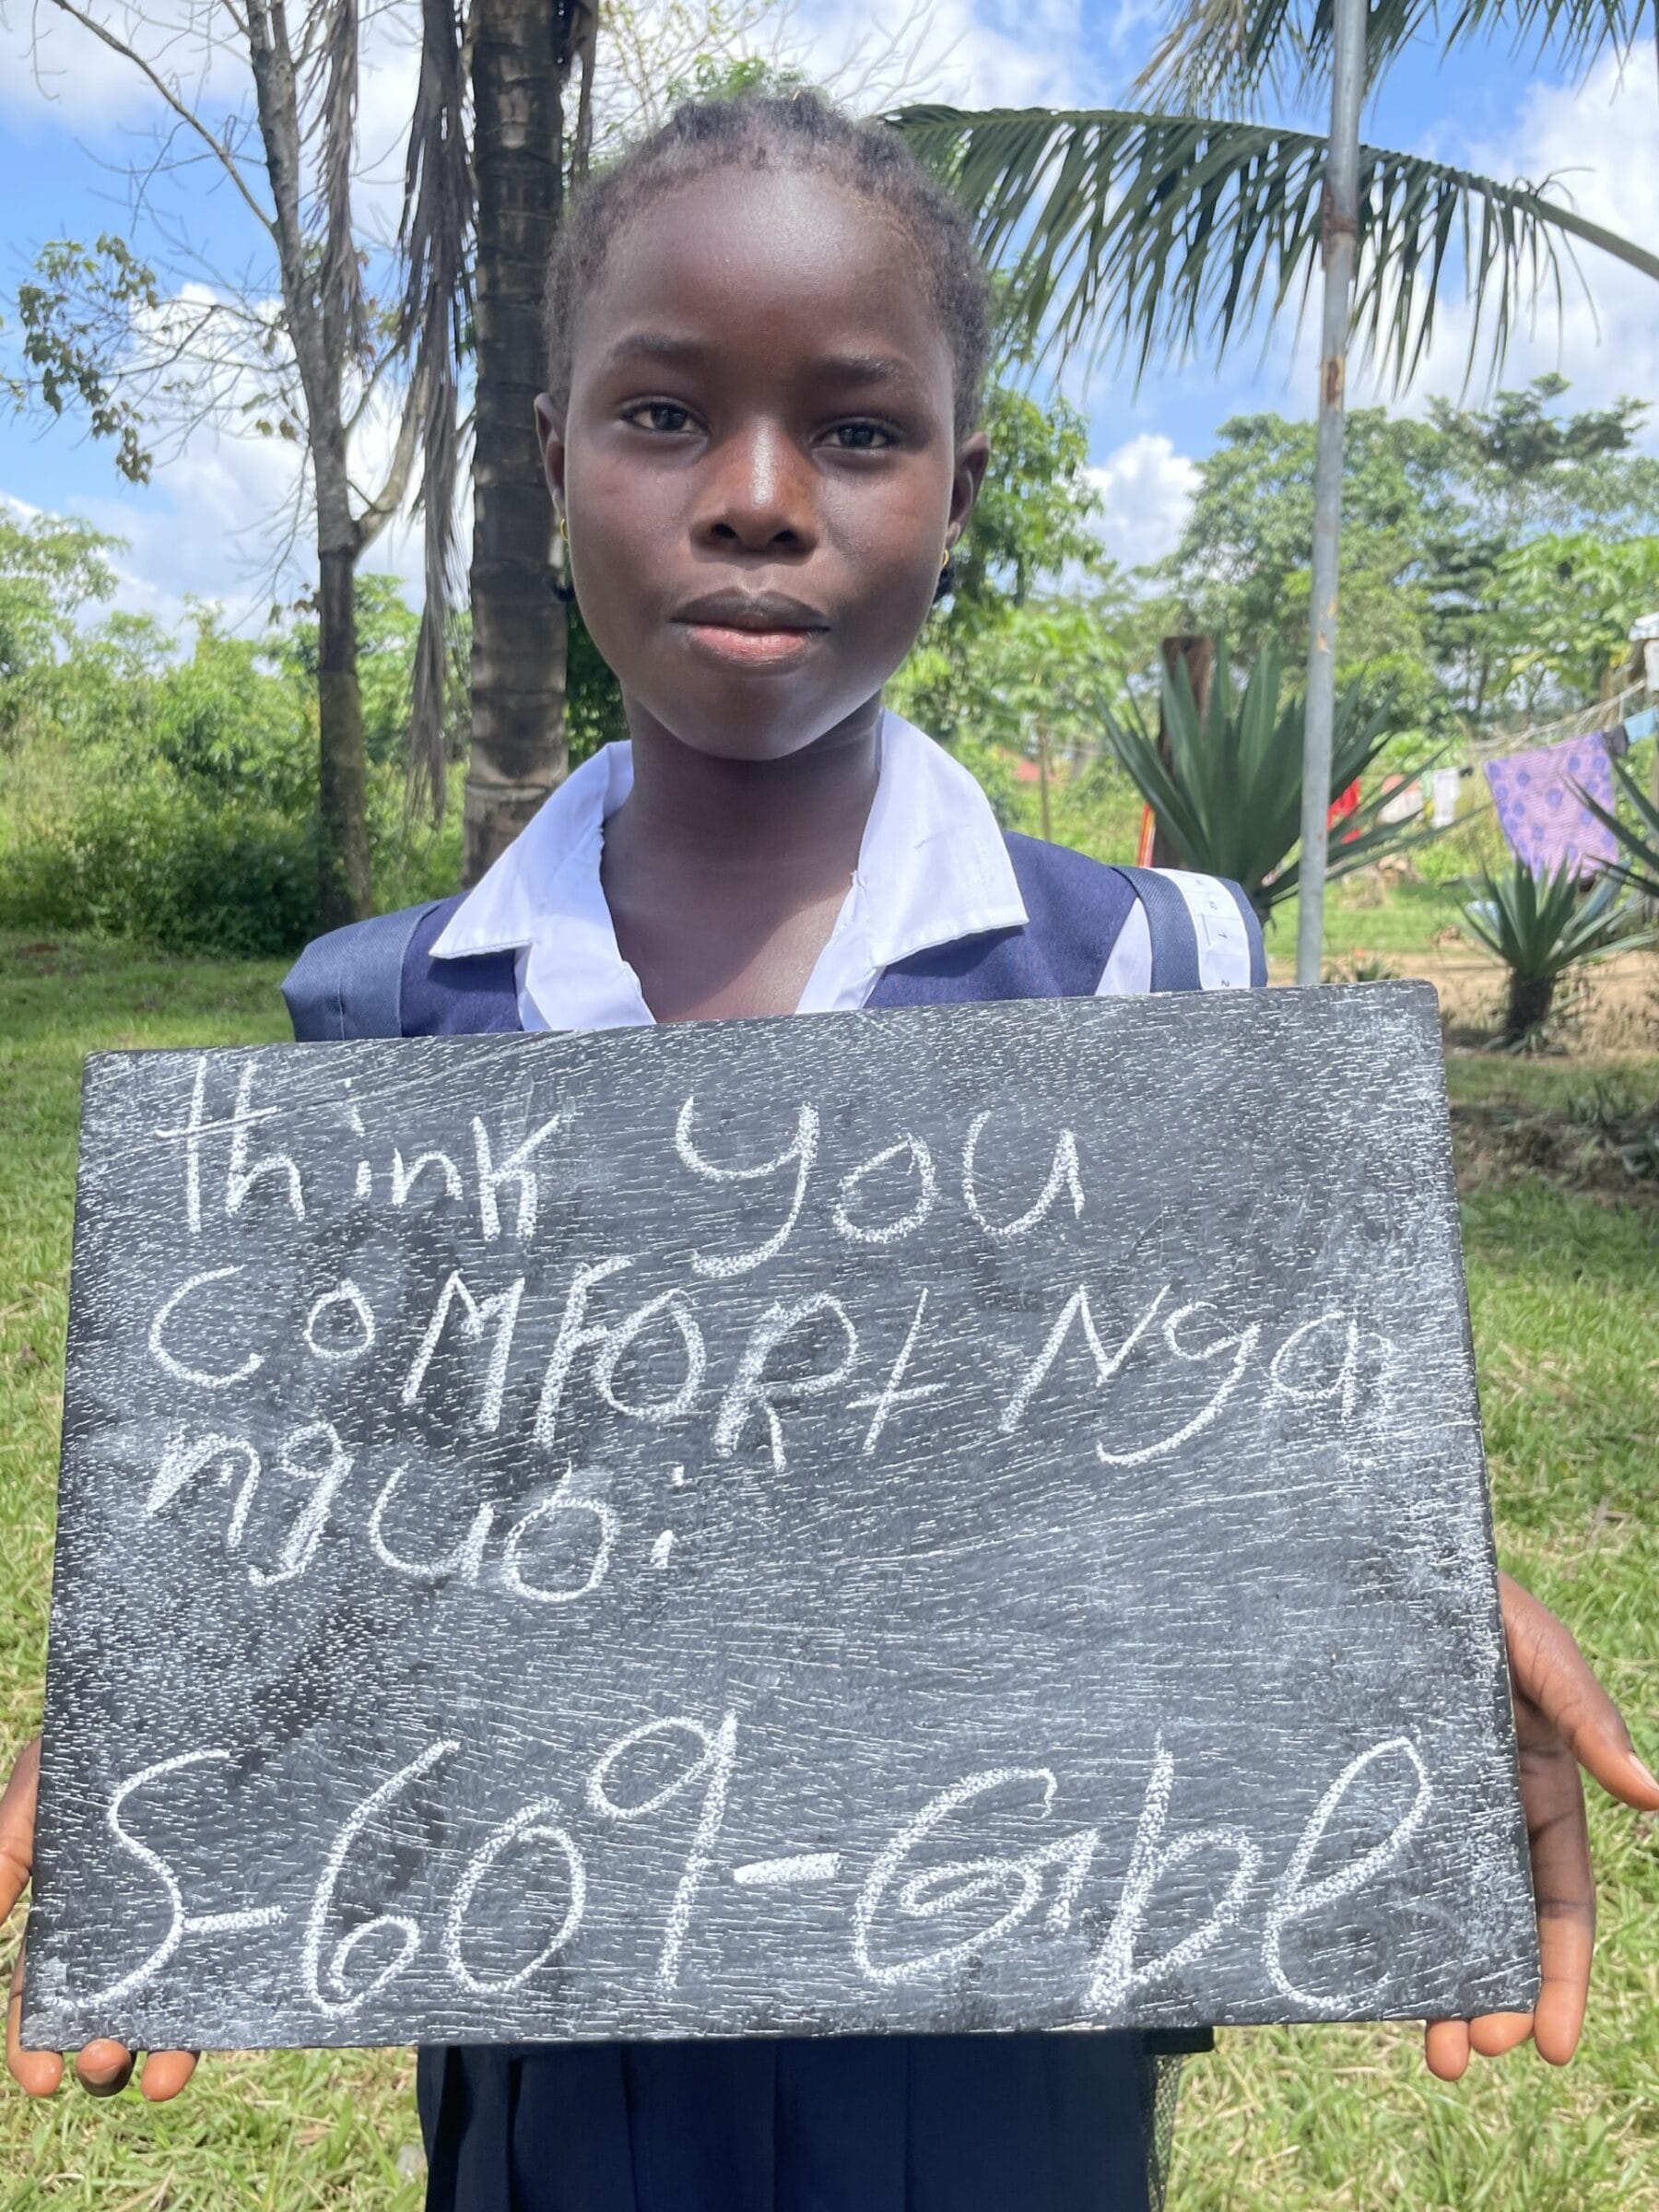 think you
COMFORt Nga
nguo:
S-609-Gple